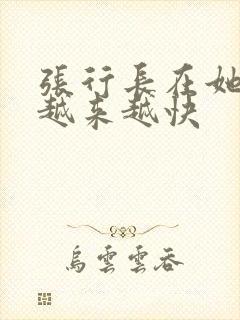 張行長在她
越来越快
烏雲雲吞